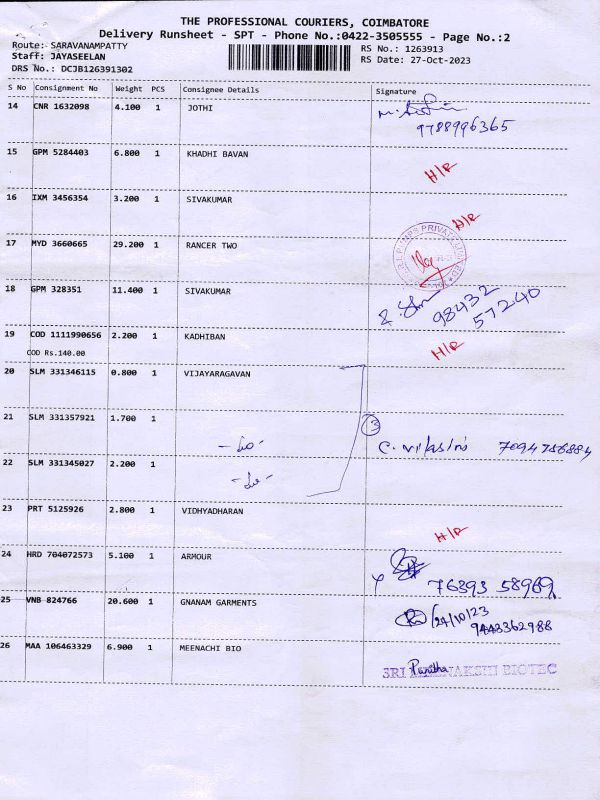 THE PROFESSIONAL COURIERS, COIMBATORE
Delivery Runsheet - SPT - Phone No.:0422-3505555 - Page No.:2
Route: SARAVANAMPATTY
Staff: JAYASEELAN
DRS No.: DCJB126391302
RS No.: 1263913
RS Date: 27-Oct-2023
S No Consignment No Weight PCS Consignee Details Signature
14 CNR 1632098 4.100 1 JOTHI
9788996365
15 GPM 5284403 6.800 1 KHADHI BAVAN
H/R
16 IXM 3456354 3.200 1 SIVAKUMAR
H/R
17 MYD 3660665 29.200 1 RANCER TWO
PUMPS PRIVATE LIMITED
18 GPM 328351 11.400 1 SIVAKUMAR
98432
57240
19 COD 1111990656 2.200 1 KADHIBAN
COD Rs.140.00
H/R
20 SLM 331346115 0.800 1 VIJAYARAGAVAN
21 SLM 331357921 1.700 1
-do-
3
C. Vilasini 7094756884
22 SLM 331345027 2.200 1
-do-
23 PRT 5125926 2.800 1 VIDHYADHARAN
H/R
24 HRD 704072573 5.100 1 ARMOUR
76393 58969
25 VNB 824766 20.600 1 GNANAM GARMENTS
24/10/23
9443362988
26 MAA 106463329 6.900 1 MEENACHI BIO
Punitha
SRI MEENAKSHI BIOTEC